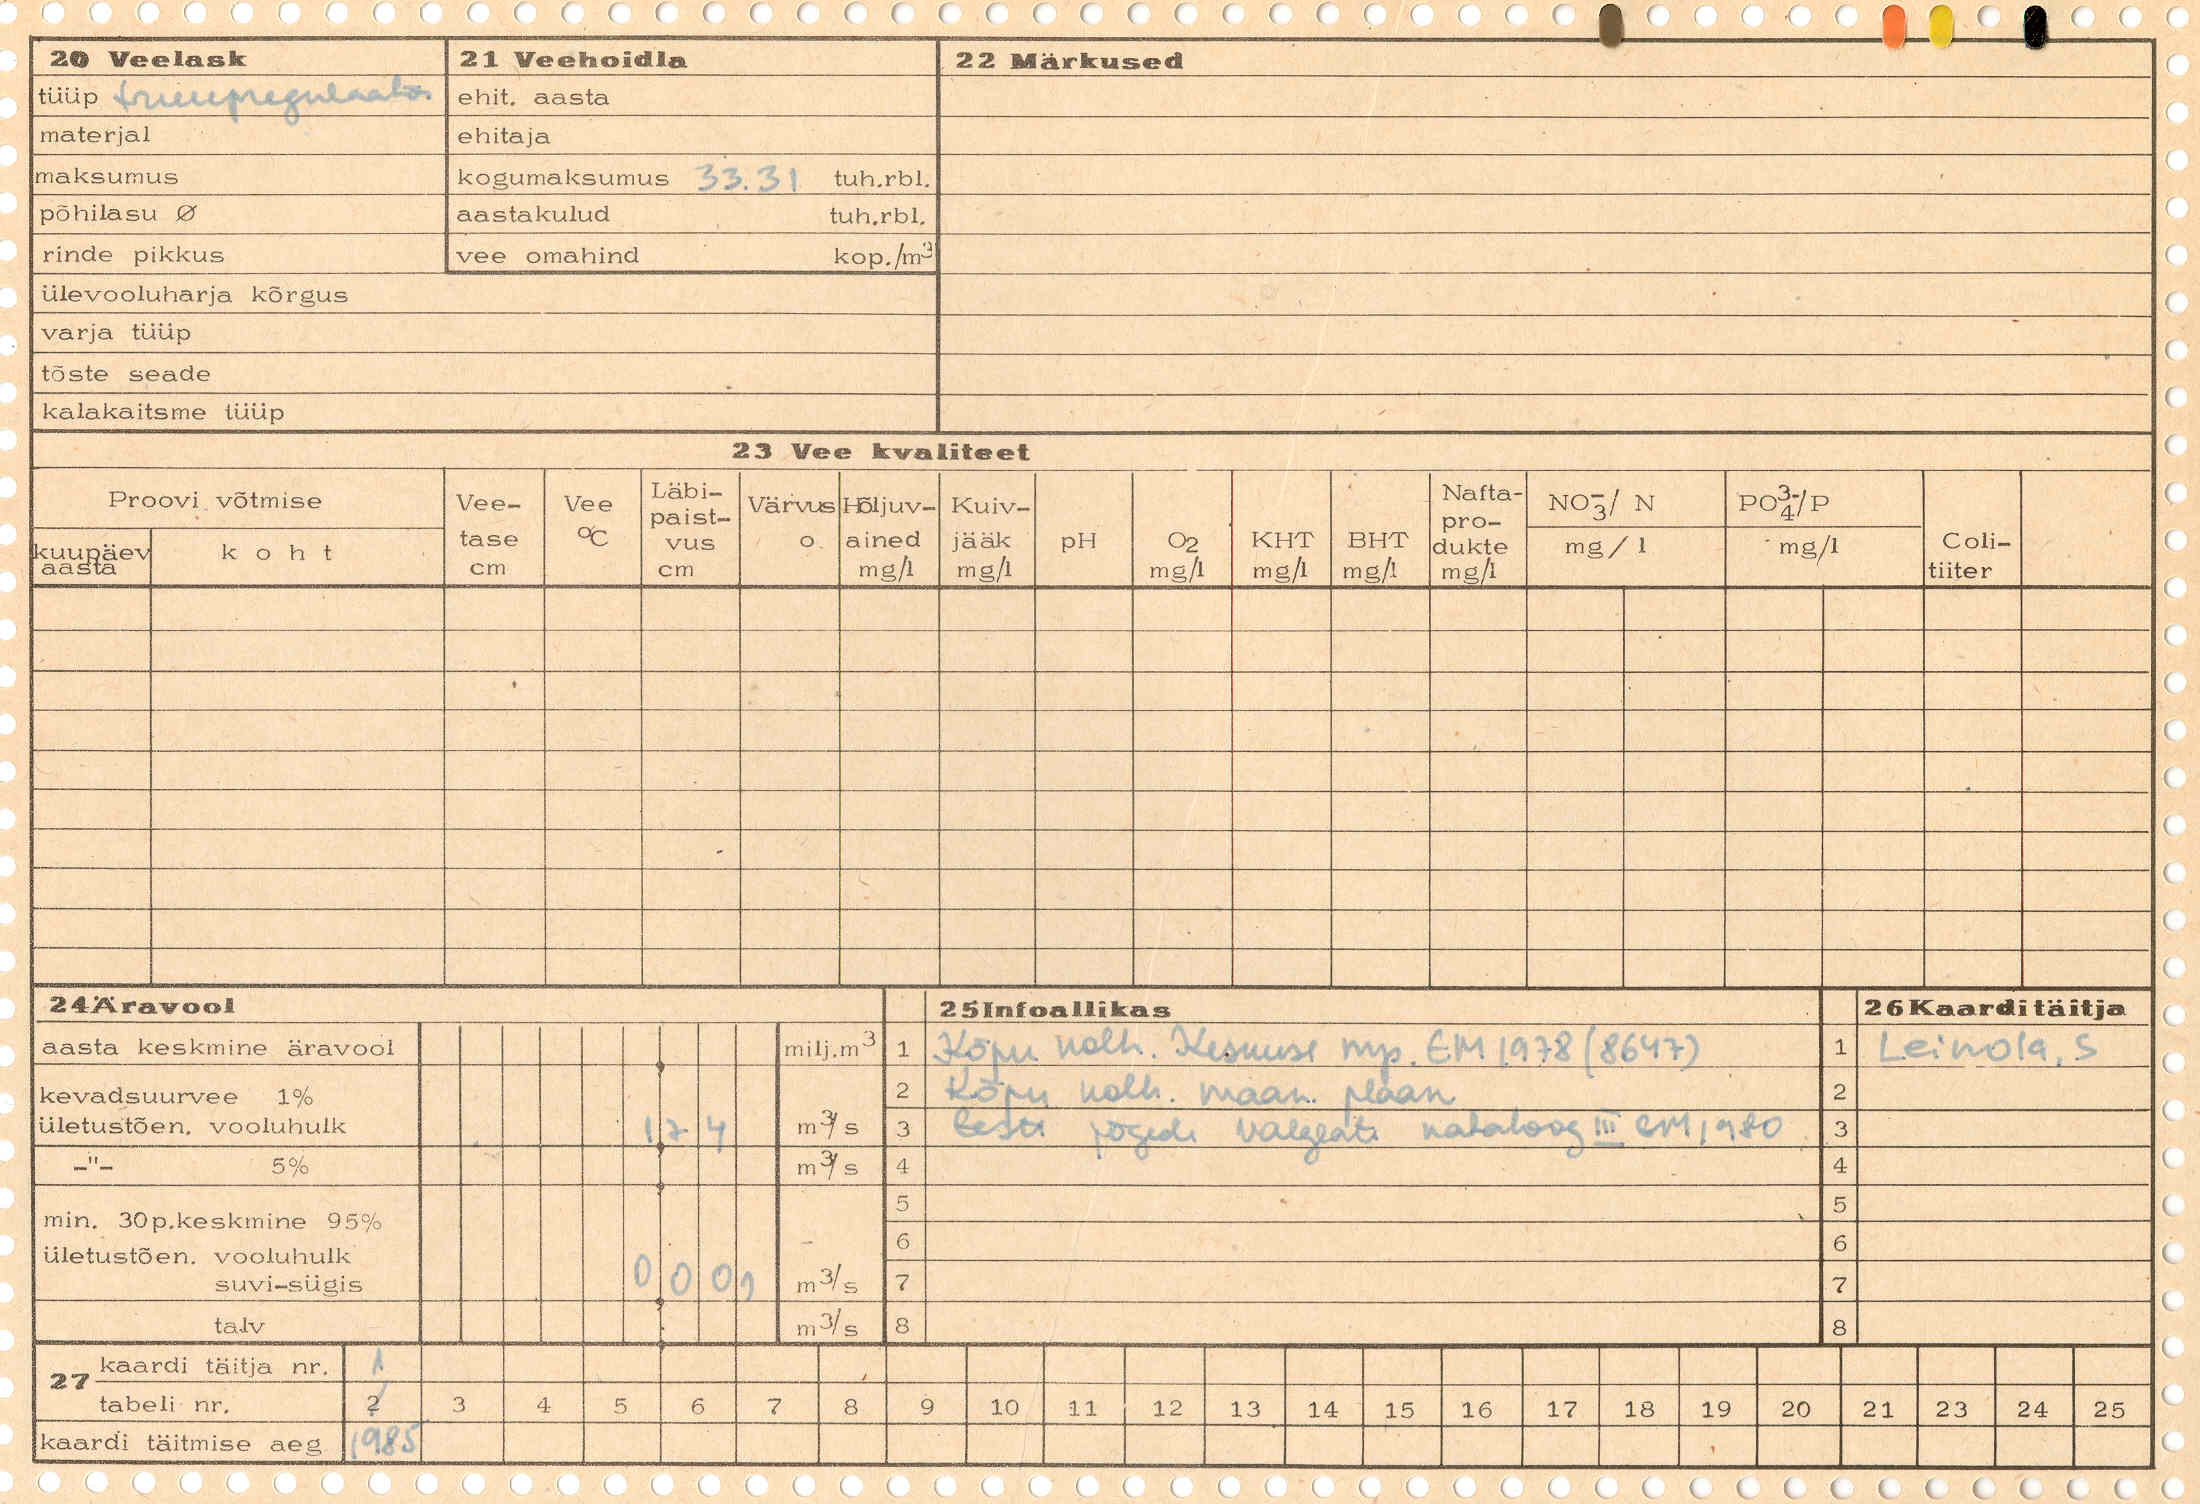 20 Veelask
tüüp truupregulaator
materjal
maksumus
põhilasu Ø
rinde pikkus
ülevooluharja kõrgus
varja tüüp
tõste seade
kalakaitsme tüüp
21 Veehoidla
ehit. aasta
ehitaja
kogumaksumus 33.31 tuh.rbl.
aastakulud tuh.rbl.
vee omahind kop./m³
22 Märkused
23 Vee kvaliteet
Proovi võtmise
kuupäev aasta
koht
Vee-tase cm
Vee °C
Läbi-paist-vus cm
Värvus o
Hõljuv-ained mg/l
Kuiv-jääk mg/l
pH
O2 mg/l
KHT mg/l
BHT mg/l
Nafta-pro-dukte mg/l
NO3-/ N mg/l
PO4 3-/P mg/l
Coli-tiiter
24 Äravool
aasta keskmine äravool milj.m³
kevadsuurvee 1%
ületustõen. vooluhulk 1 7 4 m³/s
-"- 5% m³/s
min. 30p.keskmine 95%
ületustõen. vooluhulk
suvi-sügis 0 0 0 1 m³/s
talv m³/s
25 Infoallikas
1 Kõpu kolh. Keskuse mp. EM 1978 (8647)
2 Kõpu kolh. maan. plaan
3 Eesti jõgede valgeate kataloog III EM 1980
4
5
6
7
8
26 Kaarditäitja
1 Leinola, S
2
3
4
5
6
7
8
27 kaardi täitja nr. 1
tabeli nr. 2 3 4 5 6 7 8 9 10 11 12 13 14 15 16 17 18 19 20 21 23 24 25
kaardi täitmise aeg 1985